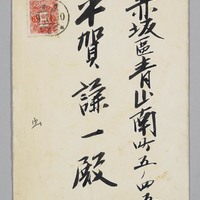 赤坂區青山南町五ノ四五
平賀謙一殿